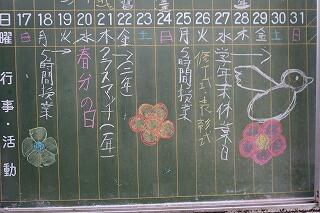 日 17 18 19 20 21 22 23 24 25 26 27 28 29 30 31
曜 日 月 火 水 木 金 土 日 月 火 水 木 金 土 日
行事・活動
5時間授業
春分の日
クラスマッチ(一年)
〃(二年)
5時間授業
修了式・表彰式
学年末休業日